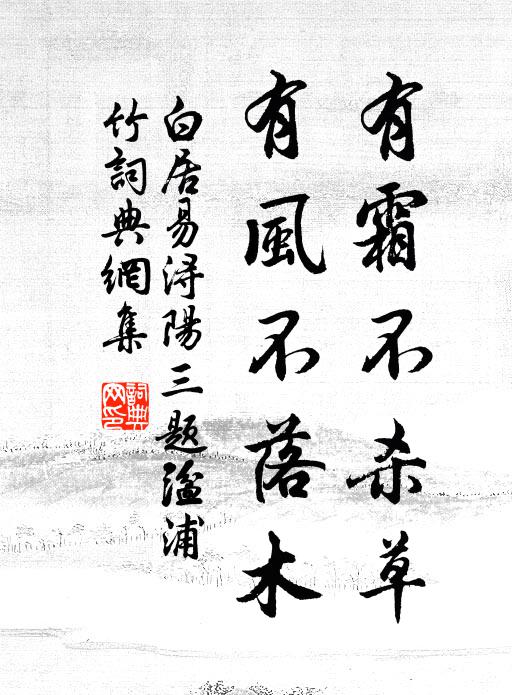 有霜不杀草
有風不落木
白居易浔陽三题溢浦
竹詞典網集
詞典網印